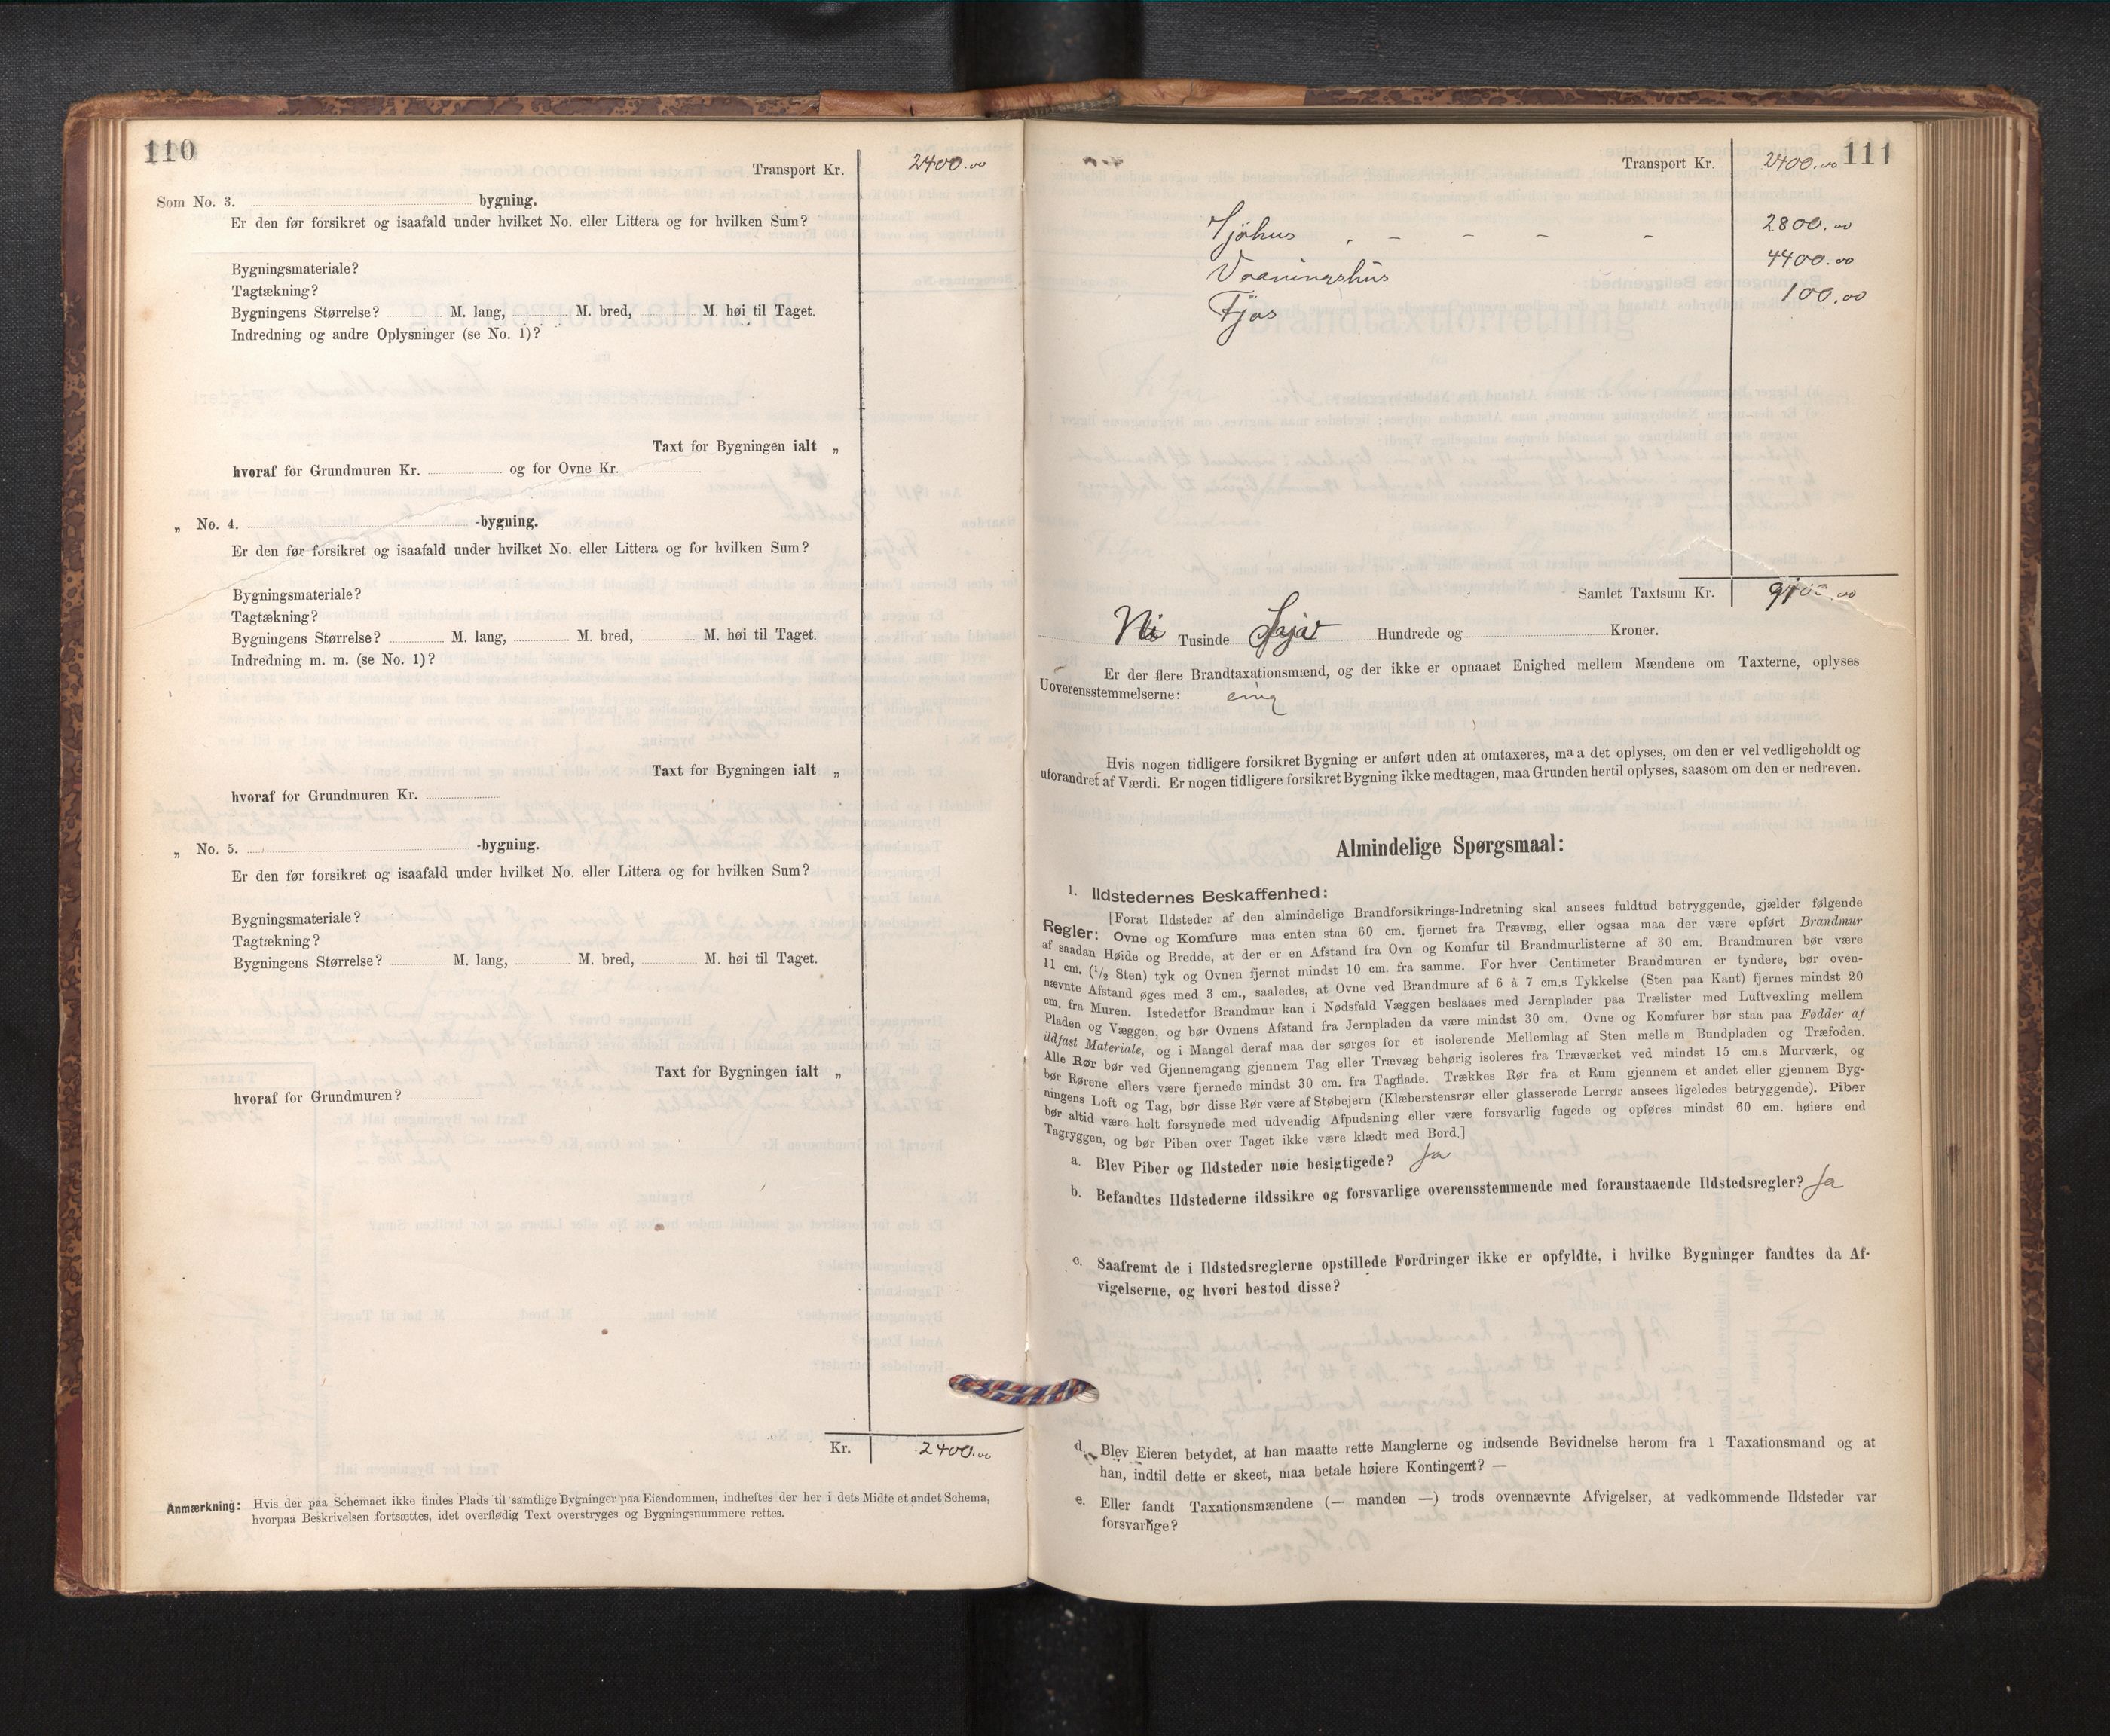 110
Transport Kr. 2400.00
Som No. 3. bygning.
Er den før forsikret og isaafald under hvilket No. eller Littera og for hvilken Sum?
Bygningsmateriale?
Tagtækning?
Bygningens Størrelse? M. lang, M. bred, M. høi til Taget.
Indredning og andre Oplysninger (se No. 1)?
Taxt for Bygningen ialt „
hvoraf for Grundmuren Kr. og for Ovne Kr.
„ No. 4. -bygning.
Er den før forsikret og isaafald under hvilket No. eller Littera og for hvilken Sum?
Bygningsmateriale?
Tagtækning?
Bygningens Størrelse? M. lang, M. bred, M. høi til Taget.
Indredning m. m. (se No. 1)?
Taxt for Bygningen ialt „
hvoraf for Grundmuren Kr.
„ No. 5. -bygning.
Er den før forsikret og isaafald under hvilket No. eller Littera og for hvilken Sum?
Bygningsmateriale?
Tagtækning?
Bygningens Størrelse? M. lang, M. bred, M. høi til Taget.
Taxt for Bygningen ialt „
hvoraf for Grundmuren?
Kr. 2400.00
Anmærkning: Hvis der paa Schemaet ikke findes Plads til samtlige Bygninger paa Eiendommen, indheftes der her i dets Midte et andet Schema,
hvorpaa Beskrivelsen fortsættes, idet overflødig Text overstryges og Bygningsnummere rettes.
111
Transport Kr. 2400.00
Sjøhus - - - - - 2800.00
Vaaningshus 4400.00
Fjøs 100.00
Samlet Taxtsum Kr. 9700.00
Ni Tusinde Hundrede og Kroner.
Er der flere Brandtaxationsmænd, og der ikke er opnaaet Enighed mellem Mændene om Taxterne, oplyses
Uoverensstemmelserne: enig
Hvis nogen tidligere forsikret Bygning er anført uden at omtaxeres, maa det oplyses, om den er vel vedligeholdt og
uforandret af Værdi. Er nogen tidligere forsikret Bygning ikke medtagen, maa Grunden hertil oplyses, saasom om den er nedreven.
Almindelige Spørgsmaal:
1. Ildstedernes Beskaffenhed:
[Forat Ildsteder af den almindelige Brandforsikrings-Indretning skal ansees fuldtud betryggende, gjælder følgende
Regler: Ovne og Komfure maa enten staa 60 cm. fjernet fra Trævæg, eller ogsaa maa der være opført Brandmur
af saadan Høide og Bredde, at der er en Afstand fra Ovn og Komfur til Brandmurlisterne af 30 cm. Brandmuren bør være
11 cm. (1/2 Sten) tyk og Ovnen fjernet mindst 10 cm. fra samme. For hver Centimeter Brandmuren er tyndere, bør oven-
nævnte Afstand øges med 3 cm., saaledes, at Ovne ved Brandmure af 6 à 7 cm.s Tykkelse (Sten paa Kant) fjernes mindst 20
cm. fra Muren. Istedetfor Brandmur kan i Nødsfald Væggen beslaaes med Jernplader paa Trælister med Luftvexling mellem
Pladen og Væggen, og bør Ovnens Afstand fra Jernpladen da være mindst 30 cm. Ovne og Komfurer bør staa paa Fødder af
ildfast Materiale, og i Mangel deraf maa der sørges for et isolerende Mellemlag af Sten mellem Bundpladen og Træfoden.
Alle Rør bør ved Gjennemgang gjennem Tag eller Trævæg behørig isoleres fra Træværket ved mindst 15 cm.s Murværk, og
bør Rørene ellers være fjernede mindst 30 cm. fra Tagflade. Trækkes Rør fra et Rum gjennem et andet eller gjennem Byg-
ningens Loft og Tag, bør disse Rør være af Støbejern (Klæberstensrør eller glasserede Lerrør ansees ligeledes betryggende). Piber
bør altid være helt forsynede med udvendig Afpudsning eller være forsvarlig fugede og opføres mindst 60 cm. høiere end
Tagryggen, og bør Piben over Taget ikke være klædt med Bord.]
a. Blev Piber og Ildsteder nøie besigtigede? Ja
b. Befandtes Ildstederne ildssikre og forsvarlige overensstemmende med foranstaaende Ildstedsregler? Ja
c. Saafremt de i Ildstedsreglerne opstillede Fordringer ikke er opfyldte, i hvilke Bygninger fandtes da Af-
vigelserne, og hvori bestod disse?
d. Blev Eieren betydet, at han maatte rette Manglerne og indsende Bevidnelse herom fra 1 Taxationsmand og at
han, indtil dette er skeet, maa betale høiere Kontingent? —
e. Eller fandt Taxationsmændene (— manden —) trods ovennævnte Afvigelser, at vedkommende Ildsteder var
forsvarlige?